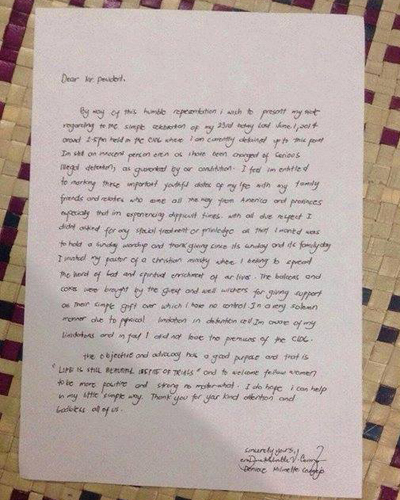 Dear Mr. President,
By way of this humble representation I wish to present my side
regarding to the simple celebration of my 23rd bday last June 1, 2014
around 2-5pm held in the CIDG where I am currently detained up to this point
I'm still an innocent person even as I have been charged of serious
illegal detention, as guaranteed by our constitution. I feel im entitled
to marking these important youthful dates of my life with my family
friends and relatives who came all the way from America and provinces
especially that im experiencing difficult times with all due respect I
didnt asked for any special treatment or privilege as that I wanted was
to hold a sunday worship and thanks giving since its sunday and its family day
I invited my pastor of a christian ministry where I belong to spread
the word of God and spiritual enrichment of our lives. The balloons and
cakes were brought by the guest and well wishers for giving support
as their simple gift over which i have no control. In a very solemn
manner due to physical limitation in detention cell. I'm aware of my
limitations and in fact I did not leave the premises of the CIDG.
The objective and advocacy has a good purpose and that is
"LIFE IS STILL BEAUTIFUL DESPITE OF TRIALS" and to welcome fellow women
to be more positive and strong no matter what. I do hope i can help
in my little simple way. Thank you for your kind attention and
God bless all of us.
Sincerely yours,
Deniece Milinette Cornejo